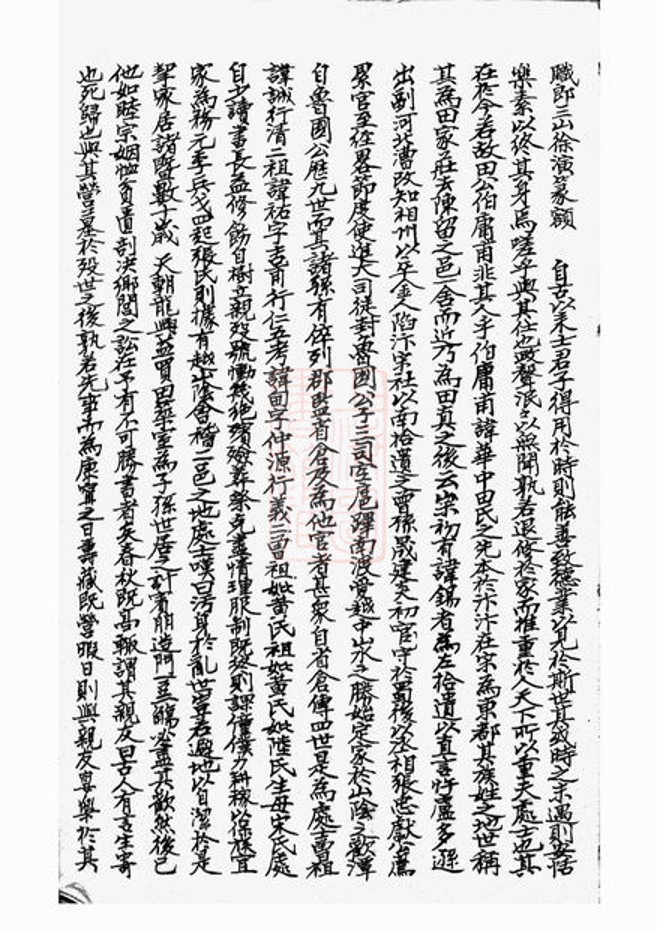 職郎三山徐演篆額　自古以來士君子得用於時則能養致德業以見於斯世其或時之未遇則安恬
樂素以終其身焉嗟乎與其仕也政聲泯泯以無聞孰若退修於家而推重於人天下所以重夫處士也其
在於今若故田公伯庸甫非其人乎伯庸甫諱華中田氏之先本於汴汴在宋為東都其族姓之地世稱
其為田家莊去陳留之邑舍而近乃為田真之後云宋初有諱錫者為左拾遺以直言忤盧多遜
出副河北漕改知相州以卒金人陷汴宋社以南拾遺之曾孫晟建炎初官守於蜀後以丞相張忠獻公薦
累官至經畧節度使進大司徒封魯國公子三司空扈蹕南渡愛越中山水之勝始定家於山陰之歡潭
自魯國公歷九世而其諸孫有倅列郡監省倉及為他官者甚衆自省倉傳四世是為處士曾祖
諱誠行清二祖諱祐字吉甫行仁五考諱甸字仲源行義二曾祖妣黃氏祖妣黃氏妣陸氏生母宋氏處
自少讀書長益修飭自樹立親歿號慟幾絕殯殮葬祭克盡情理服制既終則課僮僕力耕稼以保孫宜
家為務元季兵戈四起張氏則據有越山陰會稽二邑之地處士嘆曰污身於亂世豈若避地以自潔於是
挈家居諸暨數十歲　天朝龍興益買田築室為子孫世居之計賓朋造門一豆觴必盡其歡然後已
他如睦宗姻恤貧匱剖決鄉閭之訟在予有不可勝書者矣春秋既高輙謂其親友曰古人有言生寄
也死歸也與其營墓於歿世之後孰若先事而為康寧之日壽藏既營暇日則與親友宴樂於其